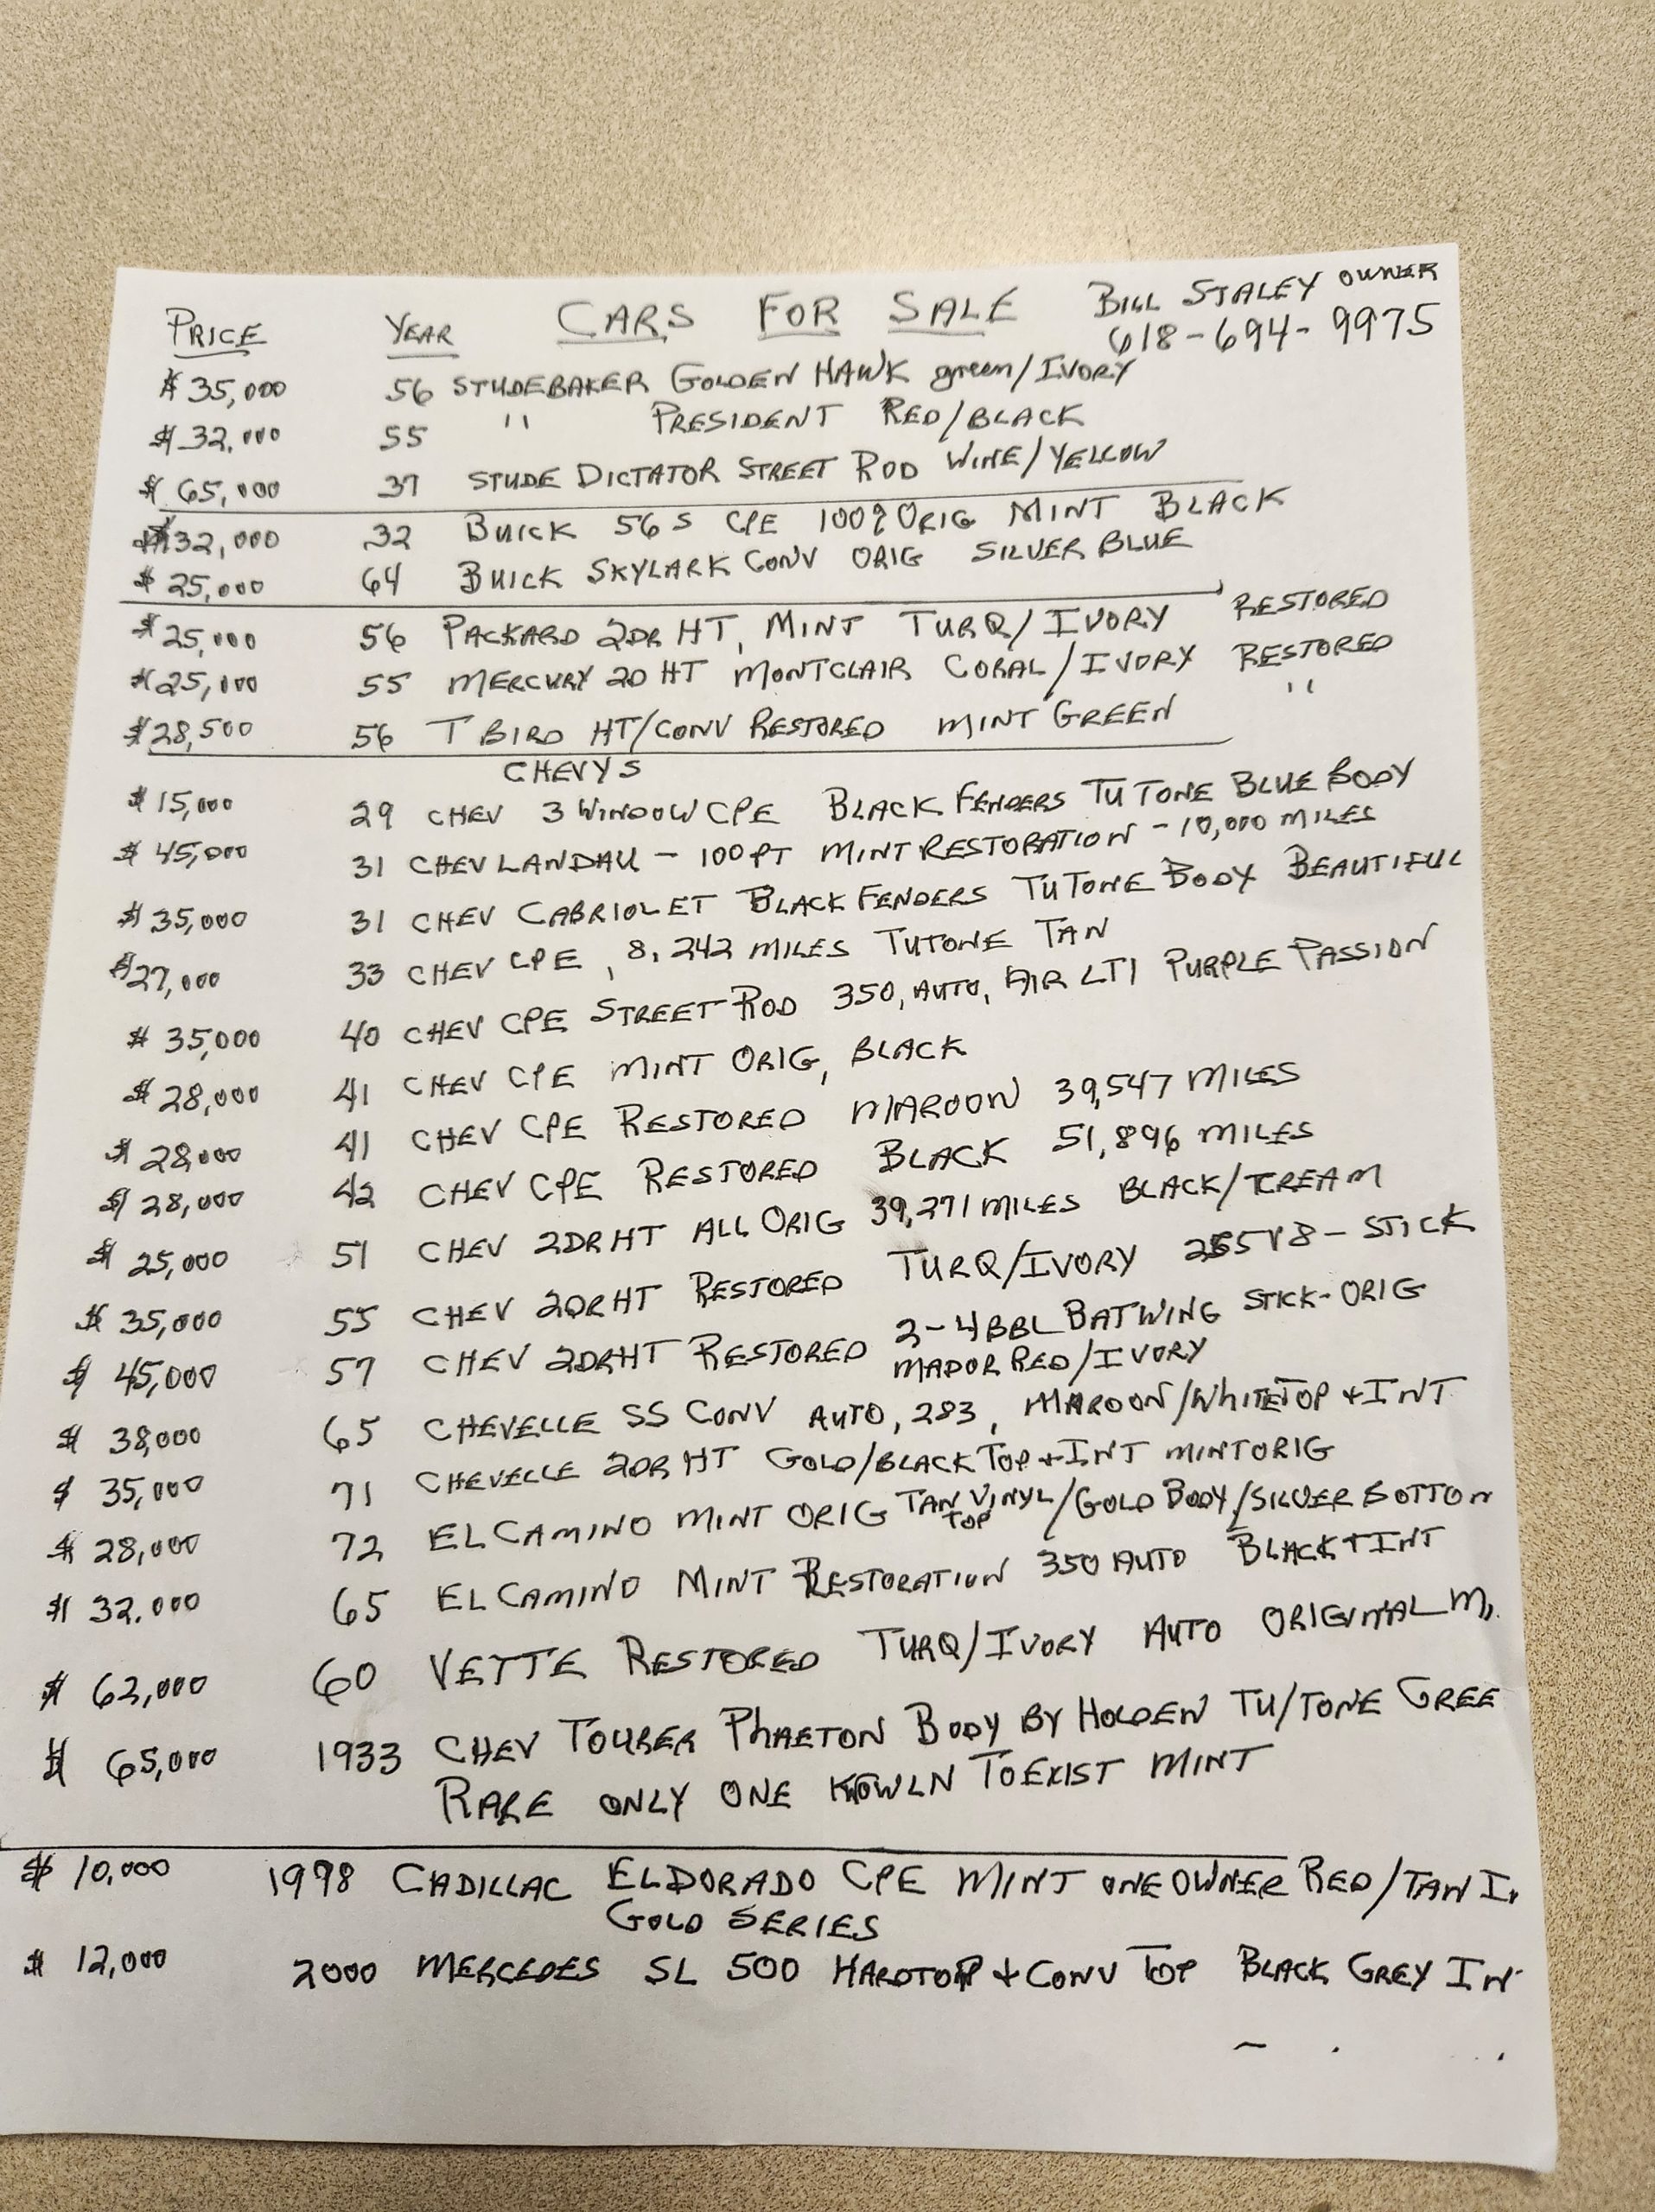 PRICE YEAR CARS FOR SALE BILL STALEY OWNER
618-694-9975
$35,000 56 STUDEBAKER GOLDEN HAWK green/IVORY
$32,000 55 " PRESIDENT RED/BLACK
$65,000 37 STUDE DICTATOR STREET ROD WINE/YELLOW
$32,000 32 BUICK 56S CPE 100% ORIG MINT BLACK
$25,000 64 BUICK SKYLARK CONV ORIG SILVER BLUE
$25,000 56 PACKARD 2DR HT, MINT TURQ/IVORY RESTORED
$25,000 55 MERCURY 2D HT MONTCLAIR CORAL/IVORY RESTORED
$28,500 56 T BIRD HT/CONV RESTORED MINT GREEN "
CHEVYS
$15,000 29 CHEV 3 WINDOW CPE BLACK FENDERS TUTONE BLUE BODY
$45,000 31 CHEV LANDAU - 100PT MINT RESTORATION - 10,000 MILES
$35,000 31 CHEV CABRIOLET BLACK FENDERS TUTONE BODY BEAUTIFUL
$27,000 33 CHEV CPE, 8,242 MILES TUTONE TAN
$35,000 40 CHEV CPE STREET ROD 350, AUTO, AIR LT1 PURPLE PASSION
$28,000 41 CHEV CPE MINT ORIG, BLACK
$28,000 41 CHEV CPE RESTORED MAROON 39,547 MILES
$28,000 42 CHEV CPE RESTORED BLACK 51,896 MILES
$25,000 51 CHEV 2DR HT ALL ORIG 39,271 MILES BLACK/CREAM
$35,000 55 CHEV 2DR HT RESTORED TURQ/IVORY V8 - STICK
$45,000 57 CHEV 2DRHT RESTORED 2-4BBL BATWING STICK-ORIG
MADOR RED/IVORY
$38,000 65 CHEVELLE SS CONV AUTO, 283, MAROON/WHITE TOP + INT
$35,000 71 CHEVELLE 2DR HT GOLD/BLACK TOP + INT MINT ORIG
$28,000 72 EL CAMINO MINT ORIG TAN VINYL TOP/GOLD BODY/SILVER BOTTOM
$32,000 65 EL CAMINO MINT RESTORATION 350 AUTO BLACK + INT
$62,000 60 VETTE RESTORED TURQ/IVORY AUTO ORIGINAL M
$65,000 1933 CHEV TOURER PHAETON BODY BY HOLDEN TU/TONE GREE
RARE ONLY ONE KNOWN TO EXIST MINT
$10,000 1998 CADILLAC ELDORADO CPE MINT ONE OWNER RED/TAN IN
GOLD SERIES
$12,000 2000 MERCEDES SL 500 HARDTOP + CONV TOP BLACK GREY IN